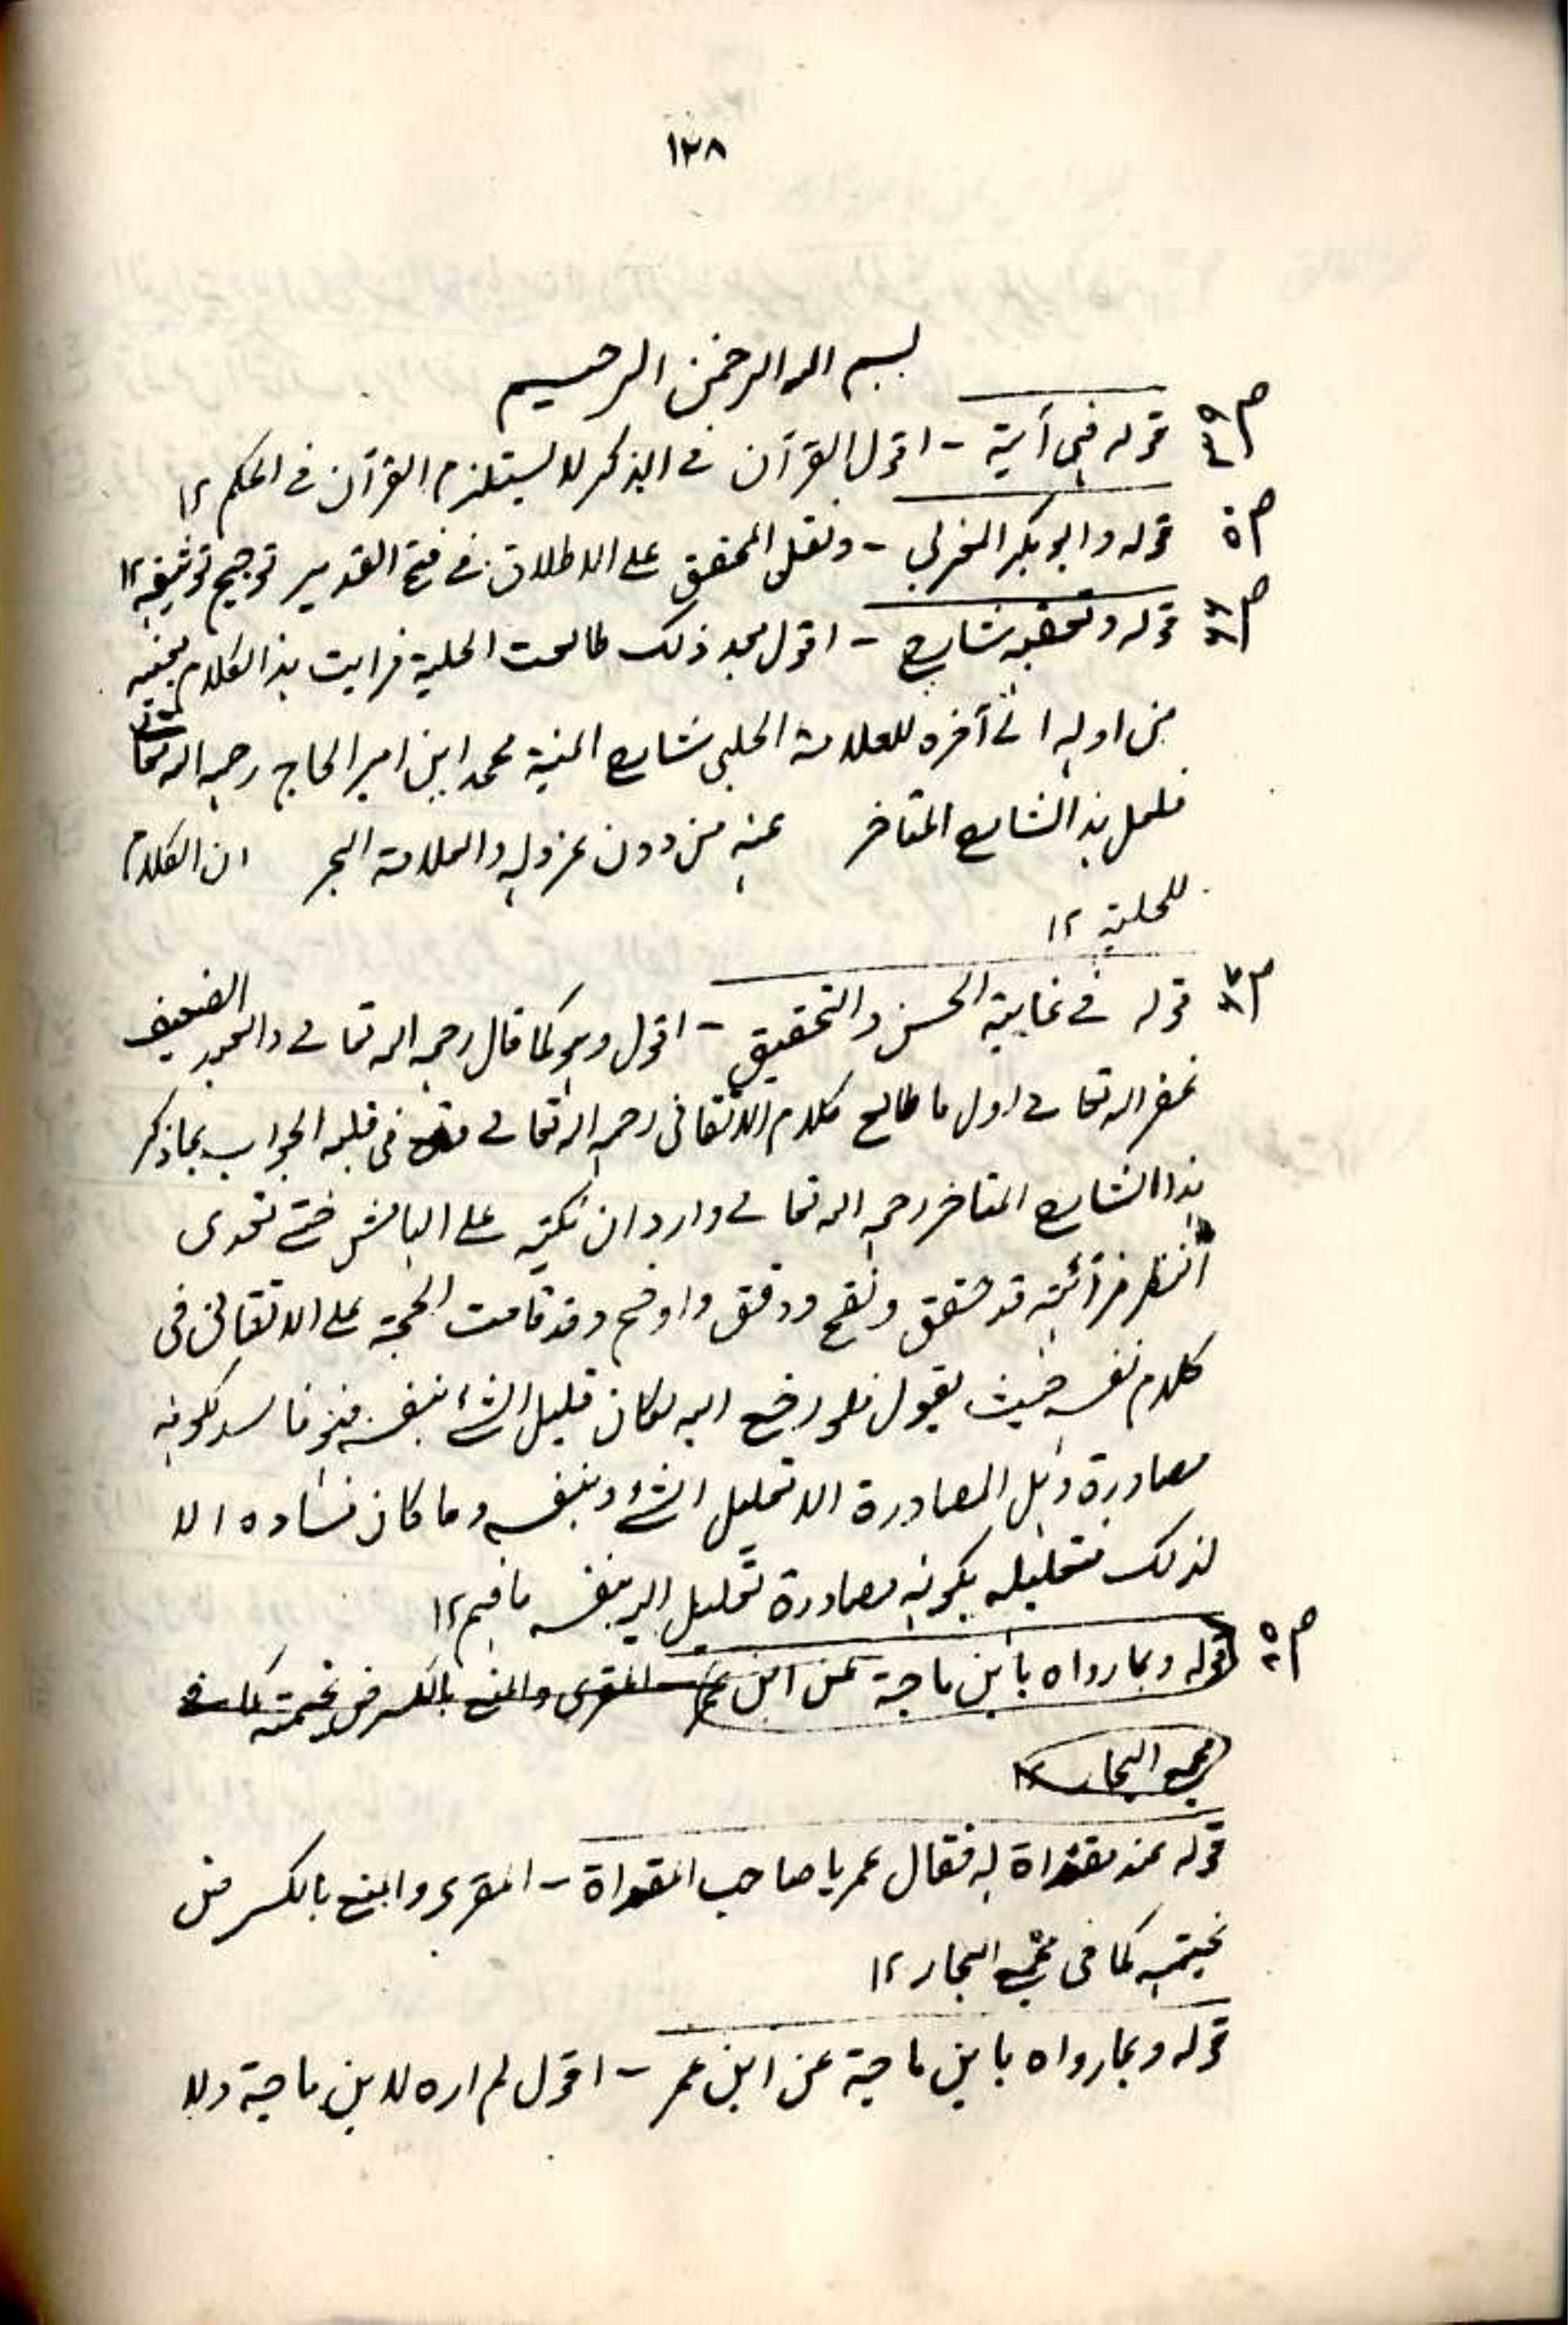 ١٢٨
بسم الله الرحمن الرحيم
قوله فهى آية - اقول القرآن فى الذكر لا يستلزم القرآن فى الحكم ١٢
ص٥ قوله وابو بكر المغربى - ونقل المحقق على الاطلاق فى فتح القدير ترجيح توثيقه ١٢
قوله وتعقبه شارح - اقول بعد ذلك طالعت الحلية فرايت هذا الكلام بعينه
من اوله الى آخره للعلامة الحلبى شارح المنية محمد ابن امير الحاج رحمه الله تعالى
فلعل هذا الشارح المتاخر عنه من دون عزو له والعلامة البحر ان الكلام
للحلية ١٢
قوله فى غاية الحسن والتحقيق - اقول وهو كما قال رحمه الله تعالى والعبد الضعيف
غفر الله تعالى اول ما طالع كلام الاتقانى رحمه الله تعالى فى قلبه الجواب بما ذكر
هذا الشارح المتاخر رحمه الله تعالى واردا ان نكتبه على الهامش حتى تعدى
النظر فرأيته قد حقق ونقح ودقق واوضح وقد قامت الحجة على الاتقانى فى
كلام نفسه حيث يقول فلو رجع اليه لكان تعليل الشئ بنفسه فهو فاسد لكونه
مصادرة وهل المصادرة الا تعليل الشئ بنفسه وما كان فساده الا
لذلك فتعليله بكونه مصادرة تعليل بنفسه فافهم ١٢
قوله وبما رواه بابن ماجة عن ابن عمر المقرى والمنع بالكسر من
مجمع البحار ١٢
قوله عند مقراة له فقال عمر يا صاحب المقراة - المقرى والمنع بالكسر من
كما فى مجمع البحار ١٢
قوله وبما رواه بابن ماجة عن ابن عمر - اقول لم اره لابن ماجة ولا